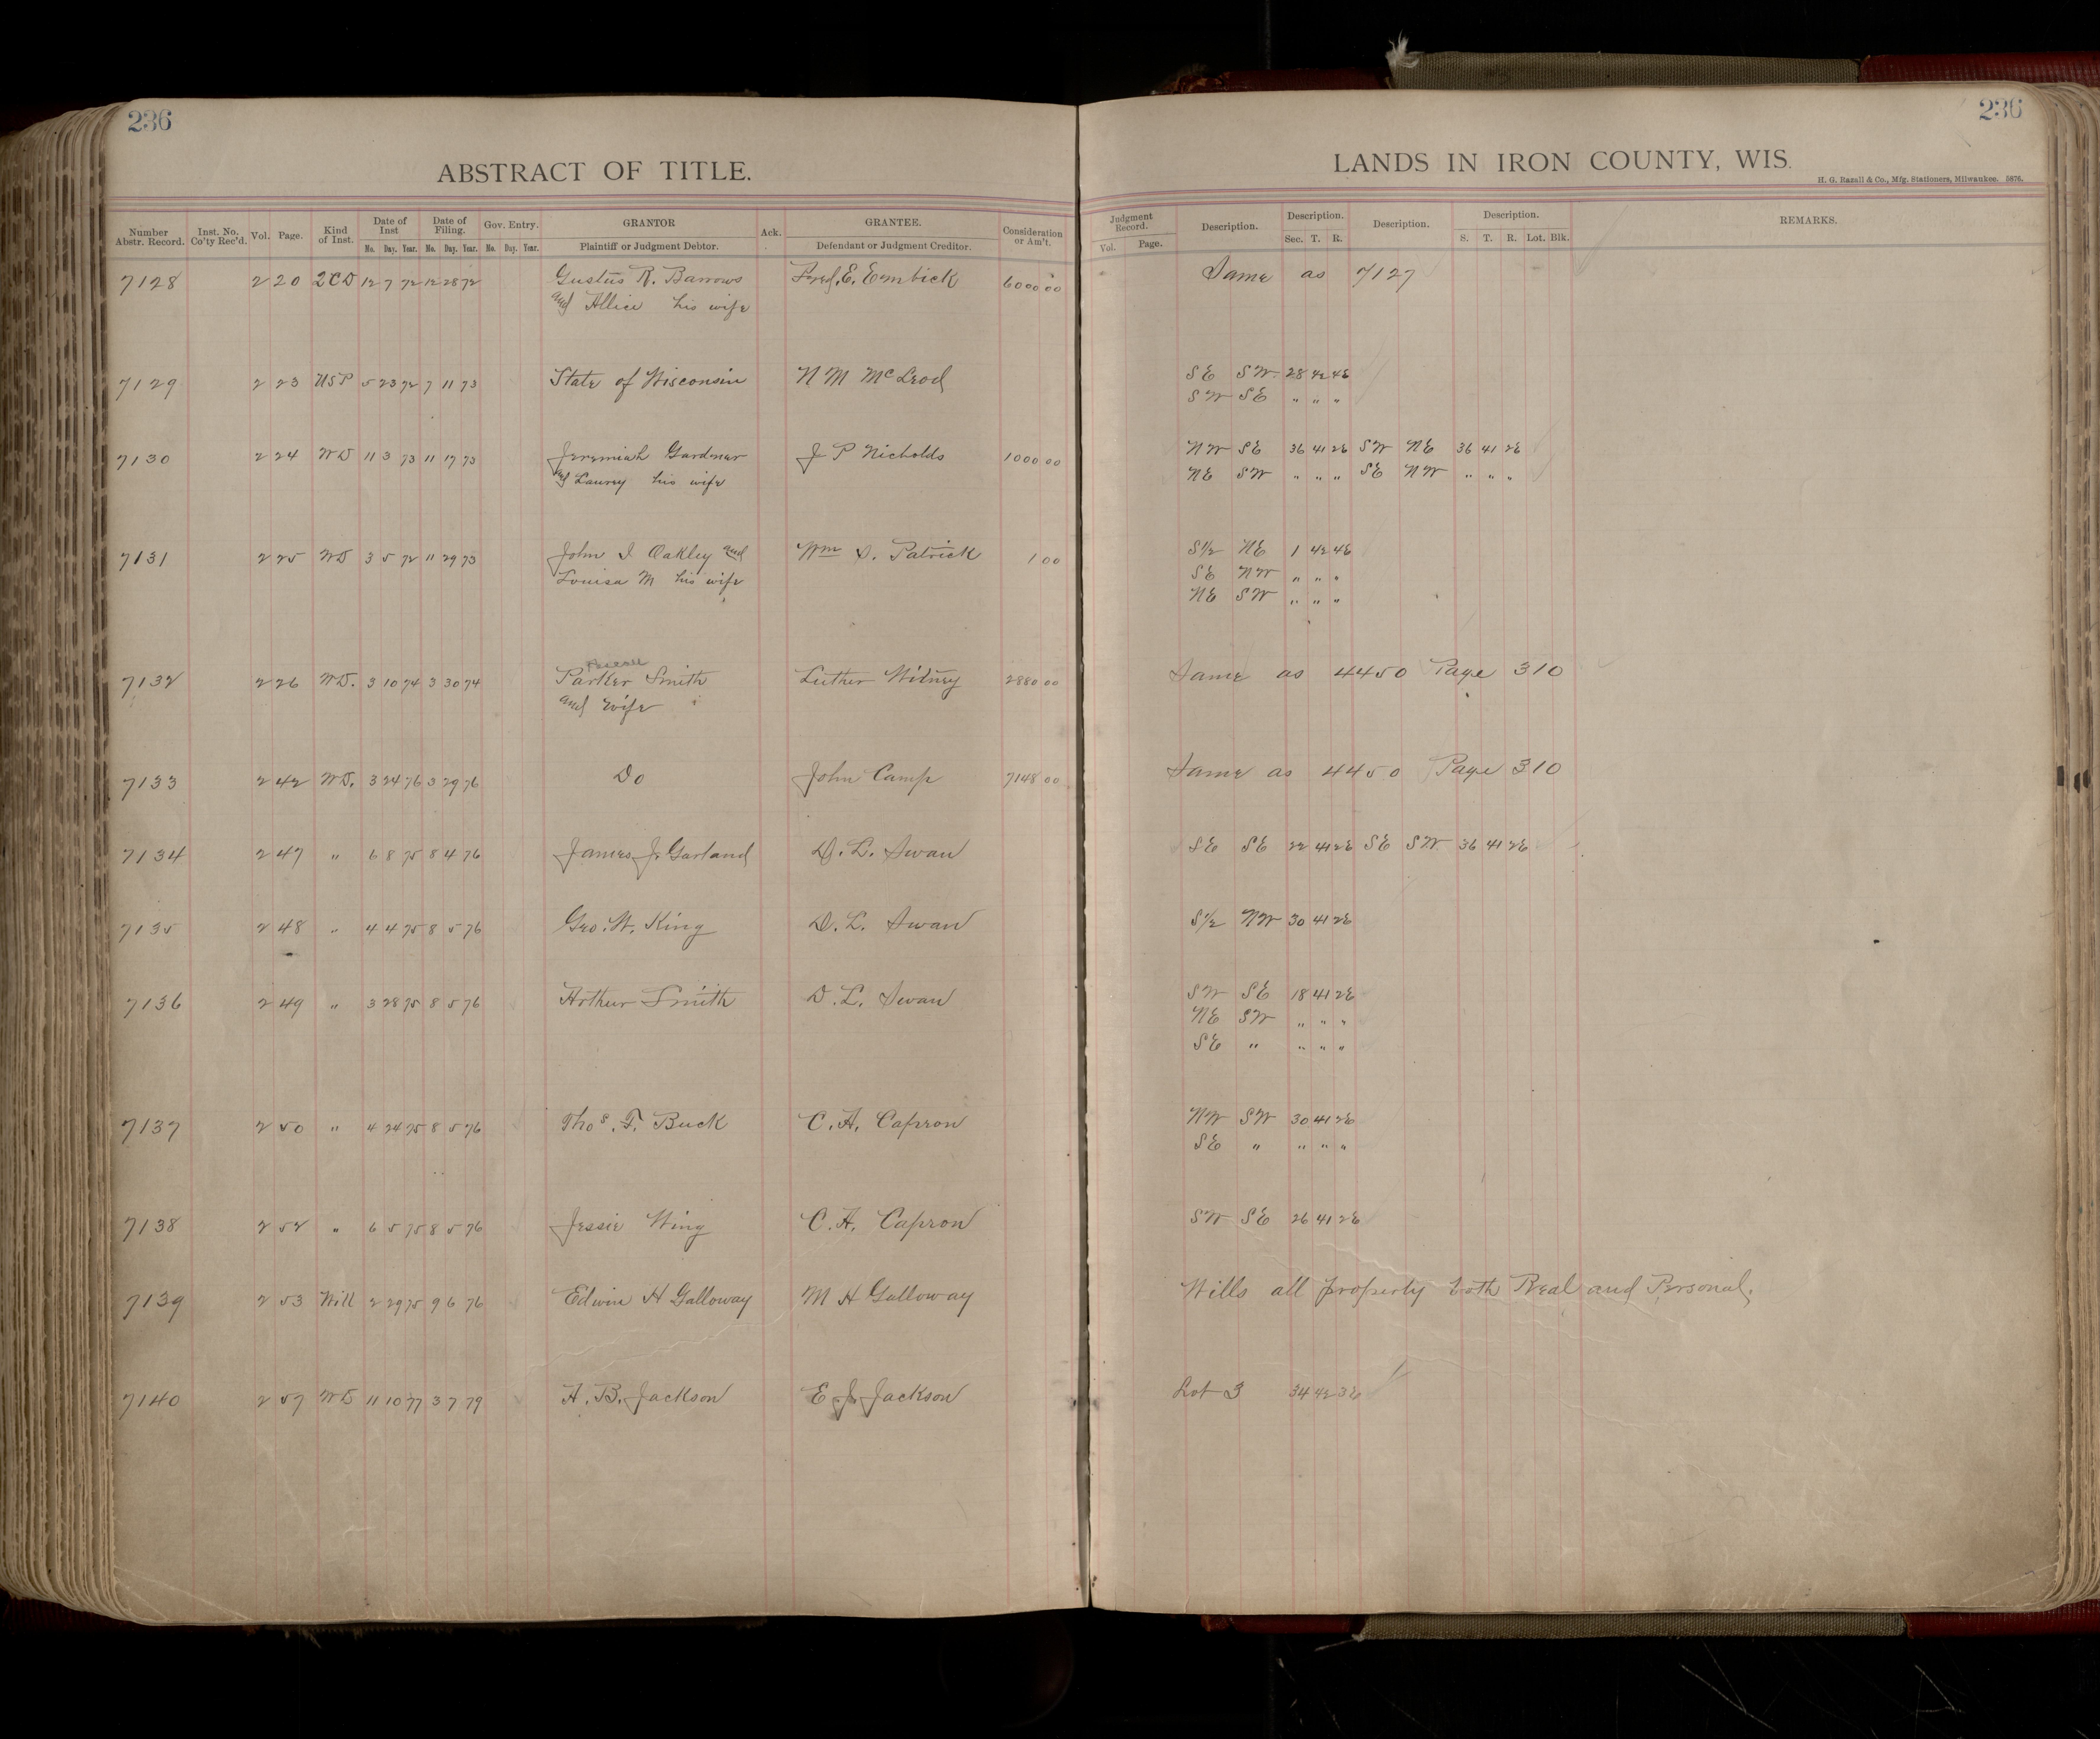 236
236
ABSTRACT OF TITLE.
LANDS IN IRON COUNTY, WIS.
H. G. Razall & Co., Mfg. Stationers, Milwaukee. 5876.
Number Abstr. Record. Inst. No. Co'ty Rec'd. Vol. Page. Kind of Inst. Date of Inst Mo. Day. Year. Date of Filing. Mo. Day. Year. Gov. Entry. Mo. Day. Year. GRANTOR Plaintiff or Judgment Debtor. Ack. GRANTEE. Defendant or Judgment Creditor. Consideration or Am't. Judgment Record. Vol. Page. Description. Description. Sec. T. R. Description. Description. S. T. R. Lot. Blk. REMARKS.
7128 2 20 2CD 12 7 72 12 28 72 Gustus R. Barrows Fred. E. Embick 6000 00 Same as 7127
and Allice his wife
7129 2 23 USP 5 23 72 7 11 73 State of Wisconsin N M McLeod SE SW 28 42 4E
SW SE " " "
7130 2 24 WD 11 3 73 11 17 73 Jeremiah Gardner J P Nicholds 1000 00 NW SE 36 41 2E SW NE 36 41 2E
and Laurey his wife NE SW " " " SE NW " " "
7131 2 25 WD 3 5 72 11 29 73 John I Oakley and Wm S. Patrick 1 00 S1/2 NE 1 42 4E
Louisa M his wife SE NW " " "
NE SW " " "
7132 2 26 WD. 3 10 74 3 30 74 Parker Smith Luther Witney 2880 00 Same as 4450 Page 310
and wife
7133 2 42 WD. 3 24 76 3 29 76 Do John Camp 7148 00 Same as 4450 Page 310
7134 2 47 " 6 8 75 8 4 76 James J. Garland D. L. Swan SE SE 22 41 2E SE SW 36 41 2E
7135 2 48 " 4 4 75 8 5 76 Geo. W. King D. L. Swan S1/2 NW 30 41 2E
7136 2 49 " 3 28 75 8 5 76 Arthur Smith D. L. Swan SW SE 18 41 2E
NE SW " " "
SE " " " "
7137 2 50 " 4 24 75 8 5 76 Thos. F. Buck C. A. Capron NW SW 30 41 2E
SE " " " "
7138 2 52 " 6 5 75 8 5 76 Jessie Wing C. A. Capron SW SE 26 41 2E
7139 2 53 Will 2 29 75 9 6 76 Edwin H Galloway M H Galloway Wills all property both Real and Personal.
7140 2 57 WD 11 10 77 3 7 79 A. B. Jackson E J. Jackson Lot 3 34 42 3E